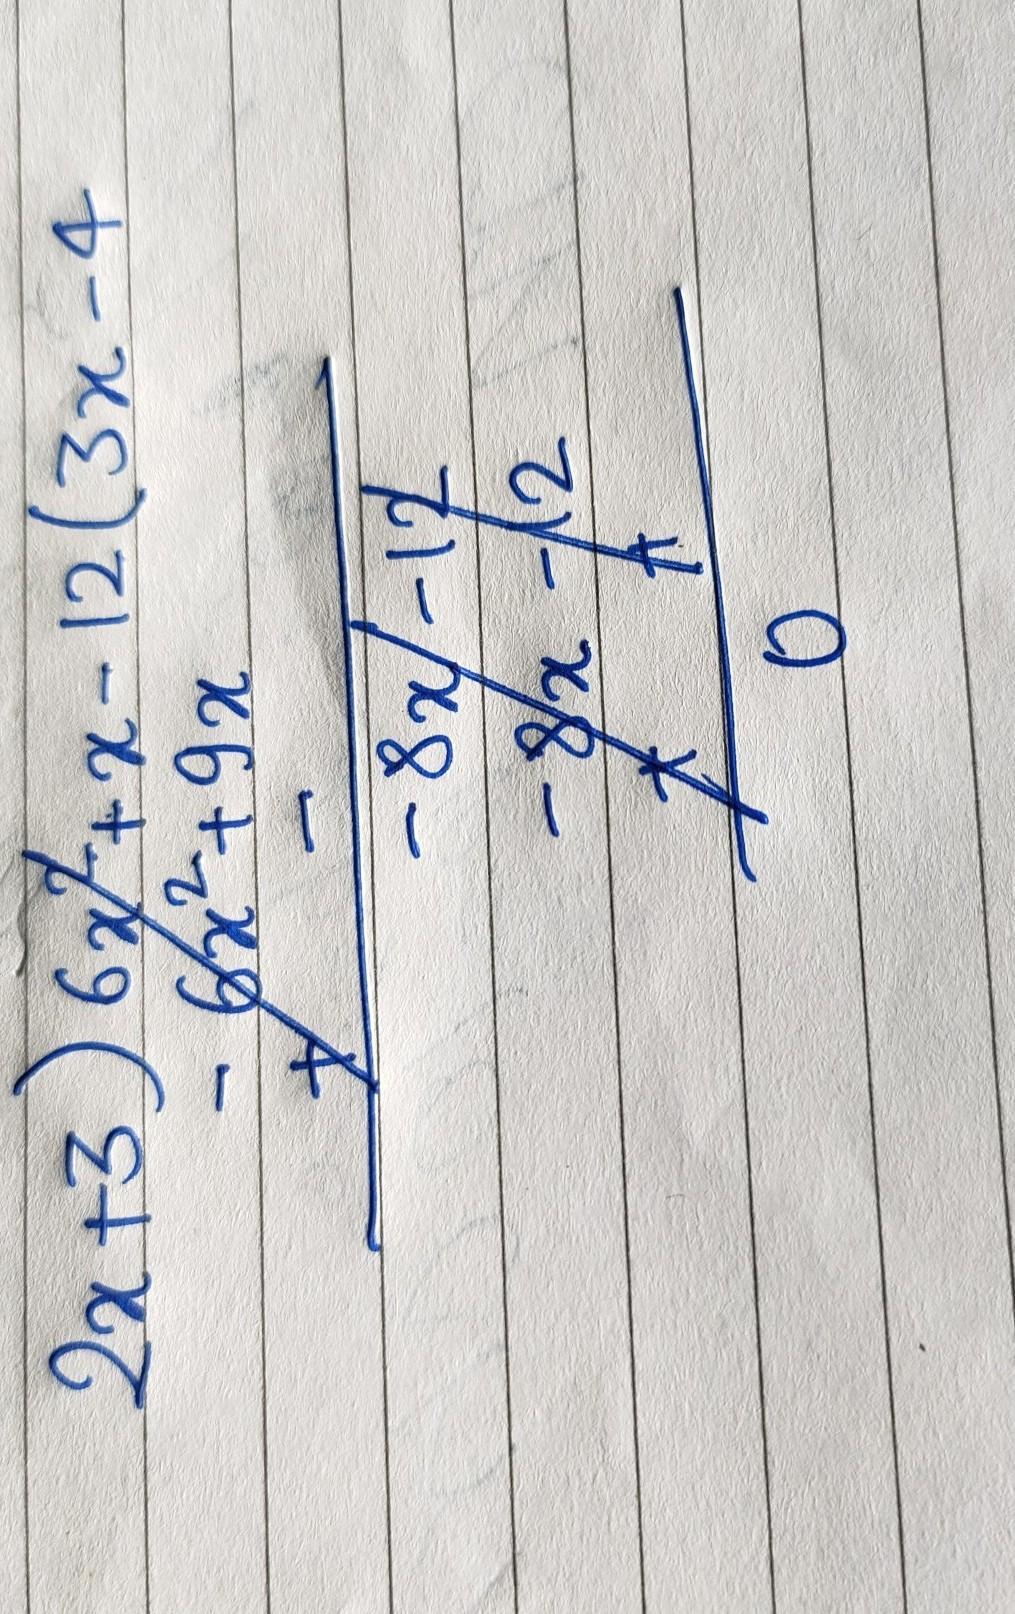 2x+3) 6x²+x-12(3x-4
- 6x²+9x
+ -
-8x-12
-8x-12
+ +
0